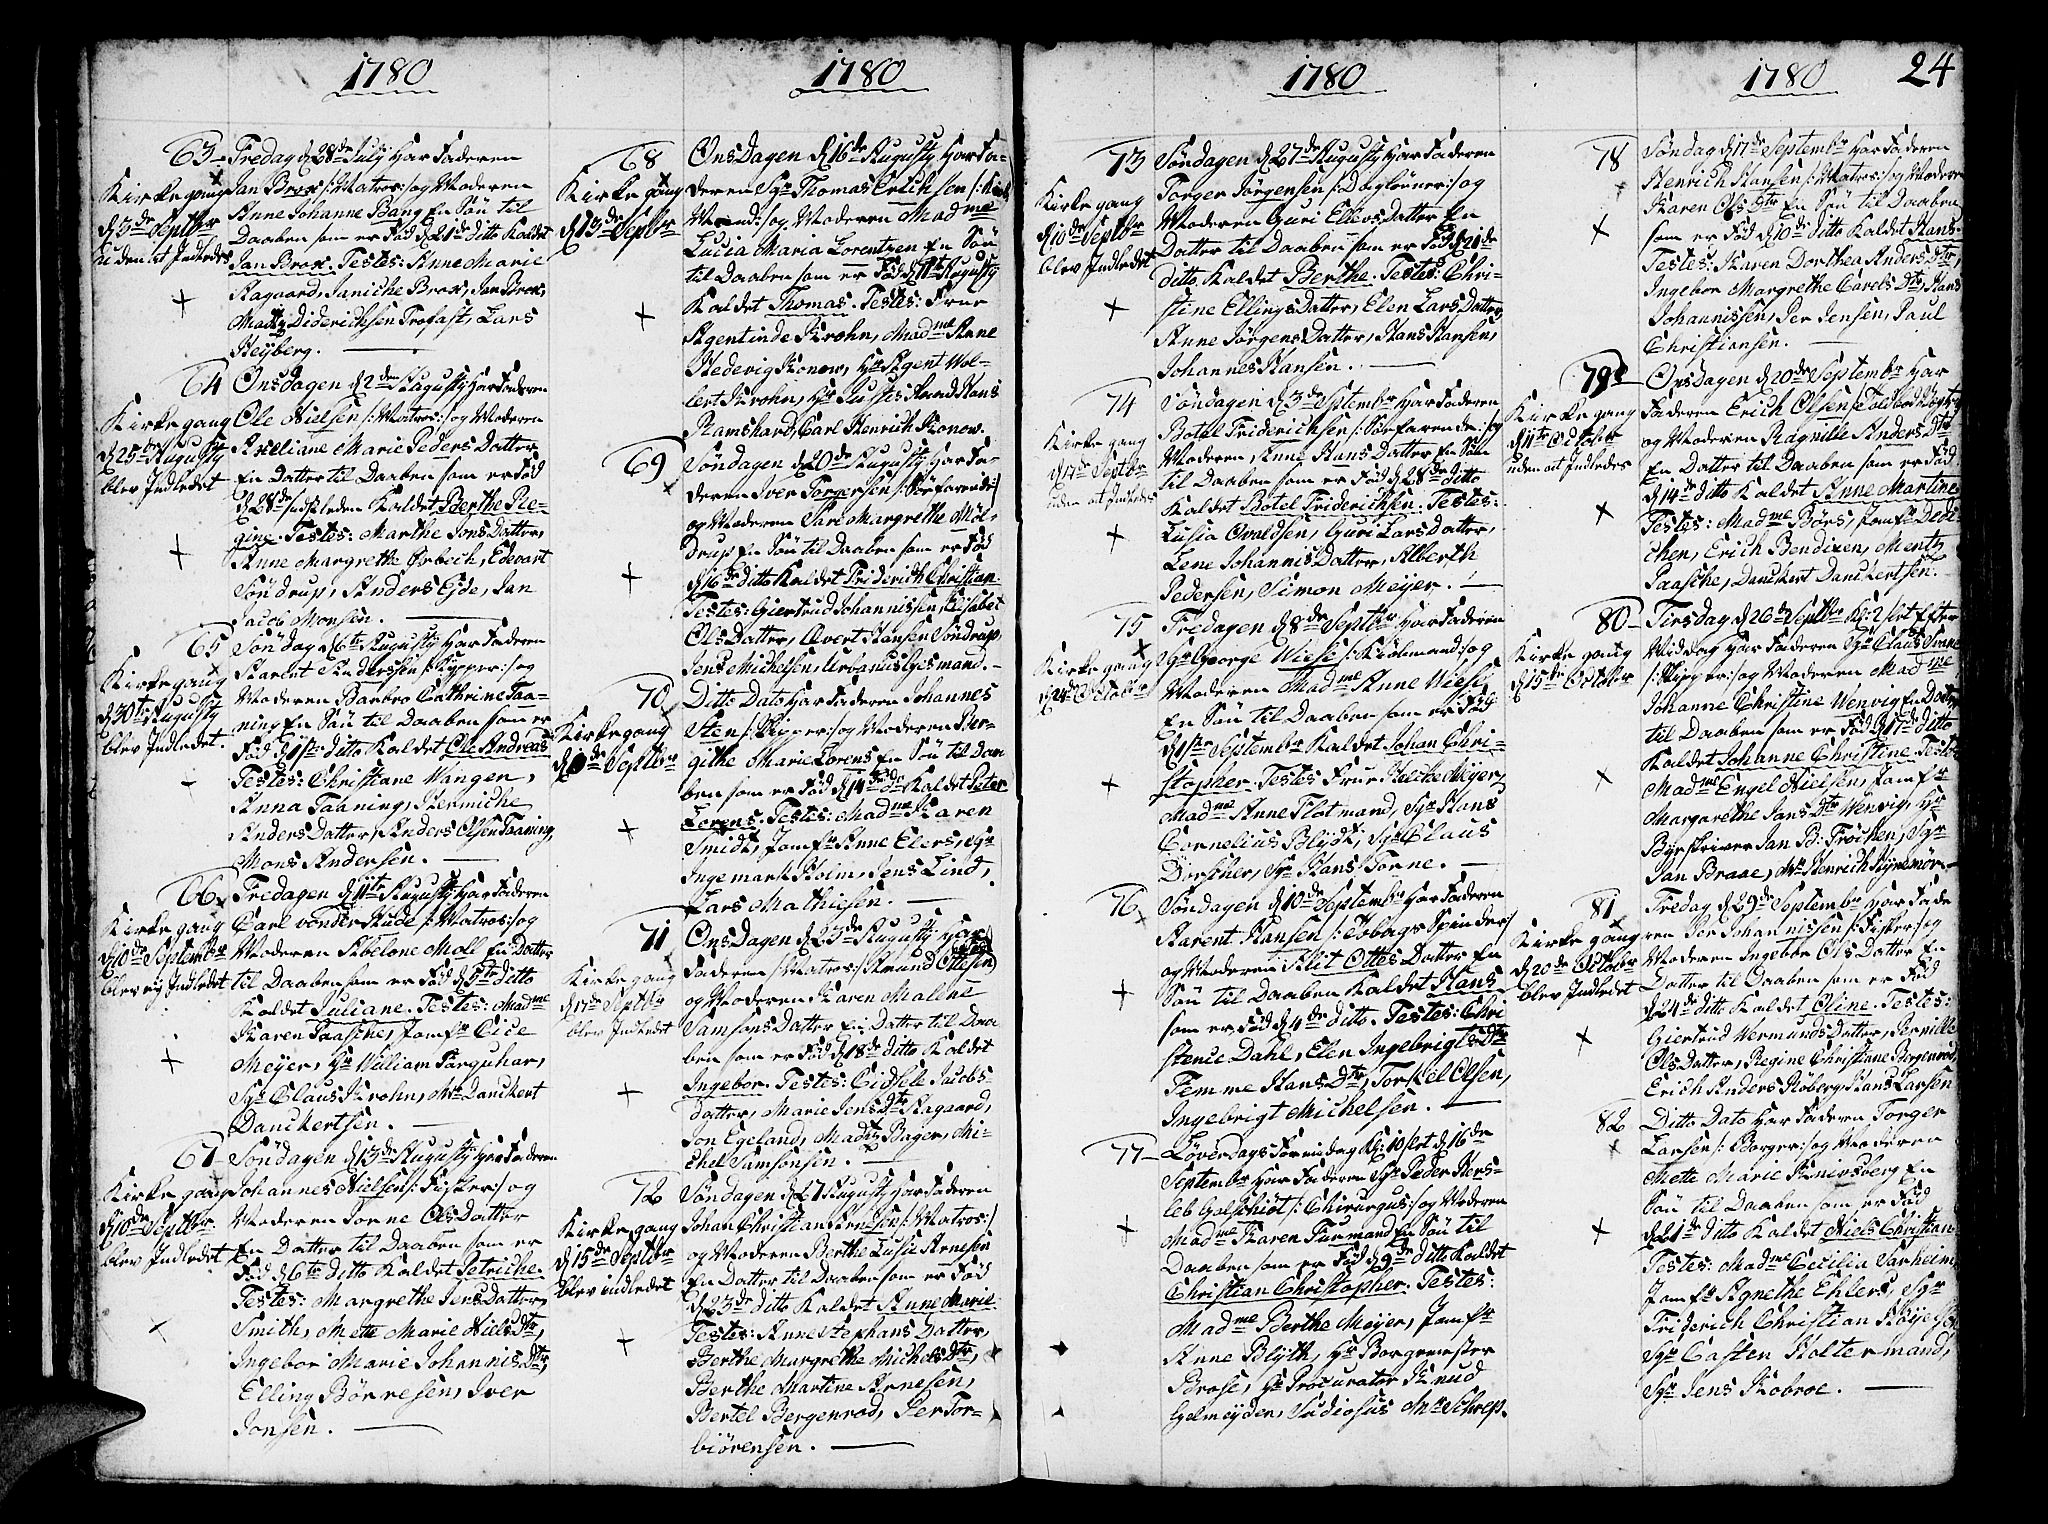 1780
63 Fredag d 28de July Har Faderen
Jan Brox /:Matros:/ og Moderen
Anne Johanne Bang En Søn til
Daaben som er Fød d 21de ditto Kaldet
Jan Brox. Testes: Anne Marie
Aagaard, Janiche Brox, Jan Brox,
Mads Diderichsen Trofast, Lars
Heyberg.
Kirkegang
d 3de Septbr
uden at Indledes
64 Onsdagen d 2den Augusty Har Faderen
Ole Nielsen /:Matros:/ og Moderen
Axeliane Marie Peders Datter
En Datter til Daaben som er Fød
d 28de sidstleden Kaldet Berthe Re-
gine. Testes: Marthe Jons Datter,
Anne Margrethe Ørbech, Edevart
Søndrup, Anders Eide, Jan
Jacob Monsen.
Kirkegang
d 25de Augusty
blev Indledet
65 Søndag d 6te Augusty Har Faderen
Aarent Anderssen /:Kypper:/ og
Moderen Barbro Cathrine Taa-
ning En Søn til Daaben som er
Fød d 1ste ditto Kaldet Ole Andreas
Testes: Christiane Wangen,
Anna Taaning, Hermiche
Anders Datter, Anders Olsen Taaning,
Mons Andersen.
Kirkegang
d 30te Augusty
blev Indledet.
66 Fredagen d 11te Augusty Har Faderen
Carl vonder Kude /:Matros:/ og
Moderen Abelone Moll En Datter
til Daaben som er Fød d 5te ditto
Kaldet Juliane. Testes: Madme
Karen Paasche, Jomfr Eide
Meyer, Hr William Farquhar,
Sgr Claus Krohn, Mr Danckert
Danckertsen.
Kirkegang
d 10de Septembr
blev ey Indledet
67 Søndagen d 13de Augusty Har Faderen
Johannes Nielsen /:Fisker:/ og
Moderen Jorne Ols Datter
En Datter til Daaben som er
Fød d 6te ditto Kaldet Petriche.
Testes: Margrethe Jens Datter
Smith, Mette Marie Niels Dtr,
Ingebor Marie Johannis Dtr,
Elling Børresen, Iver
Jonsen.
Kirkegang
d 10de Septbr
blev Indledet
1780
68 Onsdagen d 16de Augusty Har Fa-
deren Sgr Thomas Erichsen /:Kiøb
Mand:/ og Moderen Madme
Lucia Maria Lorentzen En Søn
til Daaben som er Fød d 11te Augusty
Kaldet Thomas. Testes: Frue
Agentinde Krohn, Madme Anne
Hedevig Konow, Hr Agent Wol-
lert Krohn, Hr Justis Raad Hans
Ramshard, Carl Henrich Konow.
Kirkegang
d 13de Septbr
69 Søndagen d 20de Augusty Har Fa-
deren Iver Torgersen /:Søefarende:/
og Moderen Siri Margrethe Møl-
drup En Søn til Daaben som er Fød
d 16de ditto Kaldet Friderich Christian.
Testes: Giertrud Johannissen, Elisabet
Ols Datter, Evert Hansen Søndrup,
Jens Michelsen, Urbanus Gesmand.
70 Ditto Dato Har Faderen Johannes
Sten /:Skipper:/ og Moderen Bir-
githe Marie Lorens En Søn til Daa
ben som er Fød d 14de do Kaldet Peter
Lorens. Testes: Madme Karen
Smidt, Jomfr Anne Elers, Sgr
Ingemark Holm, Jens Lind,
Lars Mathiesen.
Kirkegang
d 10de Septbr
71 Ons Dagen d 23de Augusty Har
Faderen /:Matros:/ Amund Ottesen
og Moderen Karen Malene
Samsons Datter En Datter til Daa
ben som er Fød d 18de ditto Kaldet
Ingebor. Testes: Cidsele Jacobs-
Datter, Marie Jens Dtr Aagaard,
Jon Egeland, Mads Bager, Mi-
chel Samsonsen.
Kirkegang
d 17de Septbr
blev Indledet
72 Søndagen d 27 Augusty Har Faderen
Johan Christian Arnesen /:Matros:/
og Moderen Berthe Lusie Arnesen
En Datter til Daaben som er Fød
d 23de ditto Kaldet Anne Marie
Testes: Anne Stephans Datter,
Berthe Margrethe Michels Dtr,
Berthe Martine Arnesen,
Bertel Bergenrod, Per Tor-
biørensen.
Kirkegang
d 15de Septbr
blev indledet
1780
73 Søndagen d 27de Augusty Har Faderen
Torger Jørgensen /:Dagløner:/ og
Moderen Guri Ellers Datter En
Datter til Daaben som er Fød d 21de
Ditto Kaldet Berthe. Testes: Chri-
stine Ellings Datter, Elen Lars Datter,
Anne Jørgens Datter, Hans Hansen,
Johannes Hansen.
Kirkegang
d 10de Septbr
blev Indledet
74 Søndagen d 3de Septembr Har Faderen
Botel Friderichsen /:Søefarende:/ og
Moderen, Anne Hans Datter En Søn
til Daaben som er Fød d 28de ditto
Kaldet Botel Friderichsen. Testes:
Lusia Ovaldsen, Guri Lars Datter,
Lene Johannis Datter, Alberth
Pedersen, Simon Meyer.
Kirkegang
d 17de Septbr
uden at Indledes
75 Fredagen d 8de Septbr Har Faderen
Sgr George Wiese /:Kiøbmand:/ og
Moderen Madme Anne Wiese
En Søn til Daaben som er Fød
d 1ste Septembr Kaldet Johan Chri-
stopher. Testes Frue Helche Meyer,
Madme Anne Flotmand, Sgr Hans
Cornelius Blydt, Sgr Claus
Dirscher, Sgr Hans Torne.
Kirkegang
d 22 Octobr
76 Søndagen d 10de Septembr Har Faderen
Aarent Hansen /:Tobags Spinder:/
og Moderen Alit Ottes Datter En
Søn til Daaben Kaldet Hans
som er Fød d 4de ditto. Testes: Chri
stence Dahl, Elen Ingebrigts Dtr
Femme Hans Dtr, Torkel Olsen,
Ingebrigt Michelsen.
77 Løverdags Formiddag Kl: 10 slet d 16de
Septembr Har Faderen Sgr Peder Kers-
leb Galschiøt /:Chirurgus:/ og Moderen
Madme Karen Furmand En Søn til
Daaben som er Fød d 9de ditto Kaldet
Christian Christopher. Testes:
Madme Berthe Meyer, Jomfr
Anne Blyth, Hr Borgemester
Brose, Sr Procurator Knud
Gelmeyden, Studiosus Mr Schrep.
1780
24
78 Søndag d 17de Septembr Har Faderen
Henrich Hansen /:Matros:/ og Moderen
Karen Ols Dtr En Søn til Daaben
som er Fød d 10de ditto Kaldet Hans.
Testes: Karen Dorthea Anders Dtr,
Ingebor Margrethe Carels Dtr, Hans
Johannissen, Per Jensen, Paul
Christiansen.
79 Onsdagen d 20de Septembr Har
Faderen Erich Olsen /:Toldbod
og Moderen Ragnille Anders Dtr
En Datter til Daaben som er Fød
d 14de ditto Kaldet Anne Martine
Testes: Madme Børs, Jomfr Dede
chen, Erich Bendixen, Mentz
Paasche, Danckert Danckertsen.
Kirkegang
d 11te October
uden at Indledes
80 Tirsdag d 26de Septbr Kl: 2 slet Efter
Middag Har Faderen Sgr Claus Sinne
/:Skipper:/ og Moderen Madme
Johanne Christine Wenvig En Datter
til Daaben som er Fød d 17de ditto
Kaldet Johanne Christine. Testes
Madme Engel Nielsen, Jomfr
Margarethe Jans Dtr Wenvig, Hr
Byeskriver Jan B: Frøichen, Sgr
Jan Braae, Mr Henrich Kynemør.
Kirkegang
d 15de October
81 Fredag d 29de Septembr Har Fade
ren Per Johannissen /:Fisker:/ og
Moderen Ingebor Ols Datter En
Datter til Daaben som er Fød
d 24de ditto Kaldet Oline. Testes:
Giertrud Wermunds Datter, Pernille
Ols Datter, Regine Christiane Bergenrod,
Erich Anders Høberg, Hans Larsen
Kirkegang
d 20de Octobr
blev Indledet
82 Ditto Dato Har Faderen Torger
Larsen /:Borger:/ og Moderen
Mette Marie Knivsberg En
Søn til Daaben som er Fød
d 21de ditto Kaldet Niels Christian
Testes: Madme Cecilia Sarheim,
Jomfr Agnethe Ehlers, Sgr
Friderich Christian
Sgr Casten Holtermand,
Sgr Jens Kobroe.